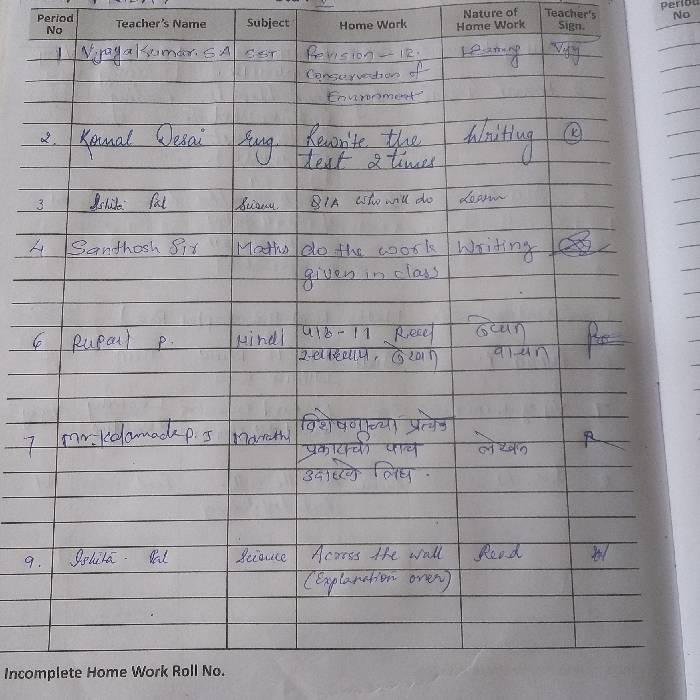 Period No Teacher's Name Subject Home Work Nature of Home Work Teacher's Sign.
1 Vijayakumar. S A SST Revision - 12. Learning
Conservation of
Environment
2. Komal Desai Eng. Rewrite the Writing K
text 2 times
3 Ishita Pal Science Q/A who will do Learn
4 Santhosh Sir Maths do the work Writing
given in class
6 Rupali P. Hindi पाठ - 11
लेखन
वाचन
7 Mr. Kalamade P. J Marathi विशेषणाच्या प्रत्येक
प्रकारची पाच लेखन
लिध .
9. Ishita - Pal Science Across the wall Read
(Explanation over)
Incomplete Home Work Roll No.
Period No